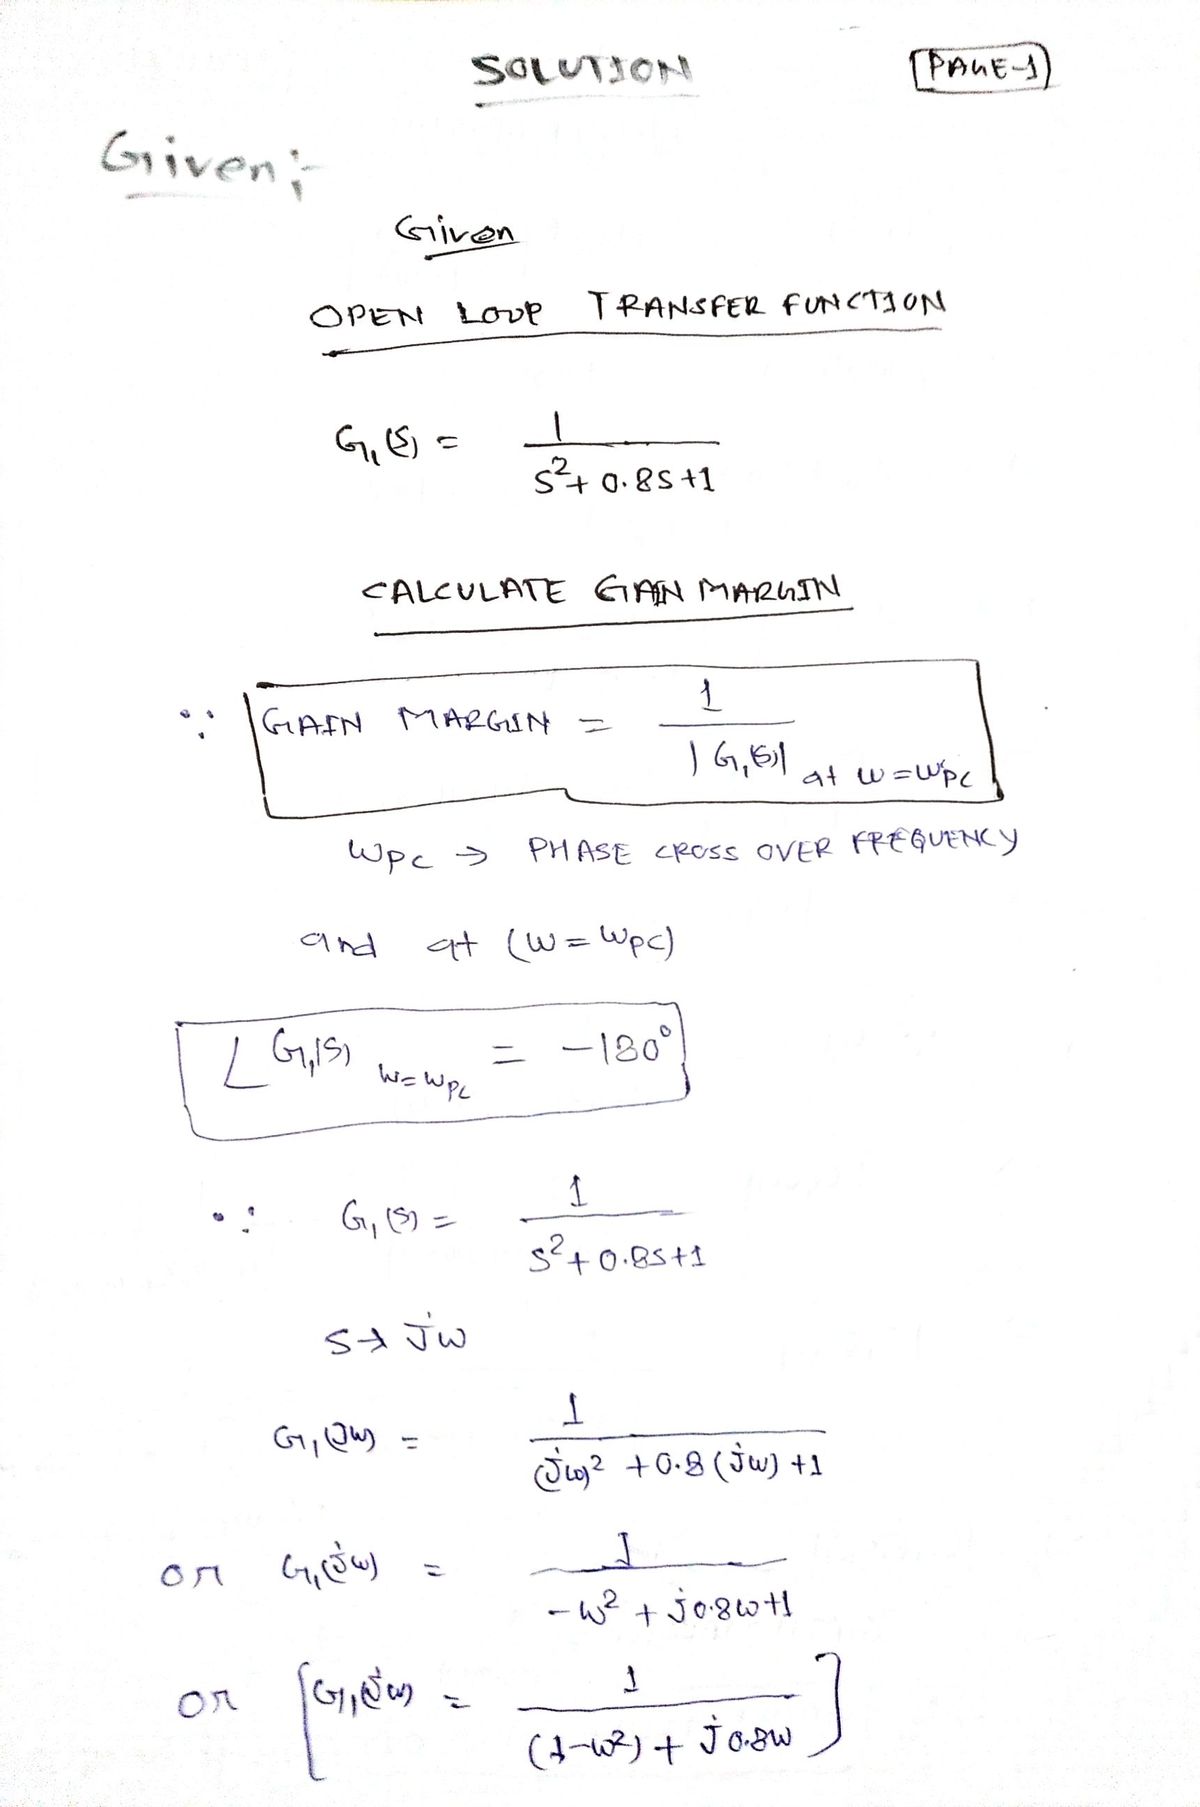 SOLUTION
PAGE-1
Given:-
Given
OPEN LOOP TRANSFER FUNCTION
G₁(S) = 1 / (S² + 0.8S + 1)
CALCULATE GAIN MARGIN
∵ GAIN MARGIN = 1 / |G₁(S)| at ω = ωpc
ωpc → PHASE CROSS OVER FREQUENCY
and at (ω = ωpc)
∠G₁(S) ω=ωpc = -180°
∵ G₁(S) = 1 / (S² + 0.8S + 1)
S → jω
G₁(jω) = 1 / ((jω)² + 0.8(jω) + 1)
or G₁(jω) = 1 / (-ω² + j0.8ω + 1)
or [G₁(jω) = 1 / ((1-ω²) + j0.8ω)]